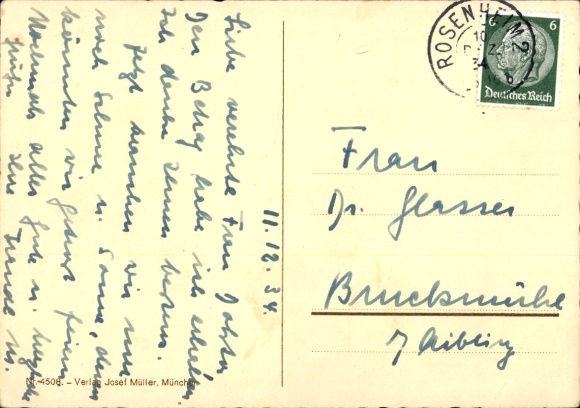 11.12.34.
Liebe verehrte Frau Doktor
Den Betrag habe ich erhalten,
Ich danke Ihnen bestens.
Jetzt brauchen wir nur
noch Schnee u. Sonne, dann
könnten wir Geburtsfeiern
Nochmals alles Gute u. herzliche
Grüße Ihre
Frau
Dr. Glasser
Bruckmühl
b/ Aibling
ROSENHEIM 2
10
34
6 6
Deutsches Reich
Nr. 4508. – Verlag Josef Müller, München